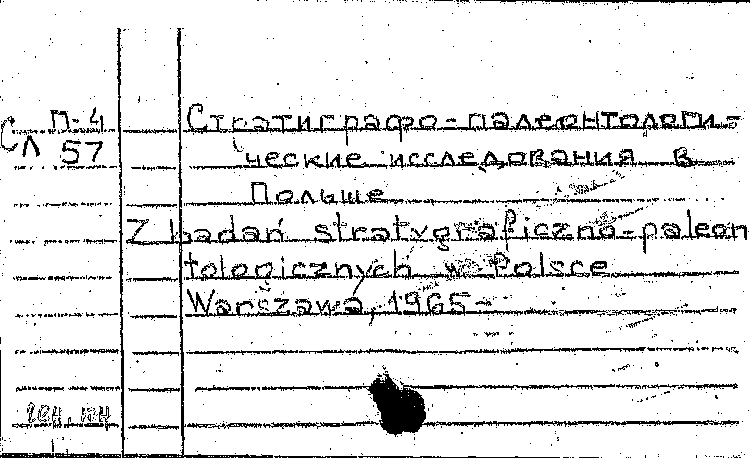 П-4 Стратиграфо-палеонтологи-
Сл 57 ческие исследования в
Польше
Z badań stratygraficzno-paleon
tologicznych w Polsce
Warszawa, 1965-